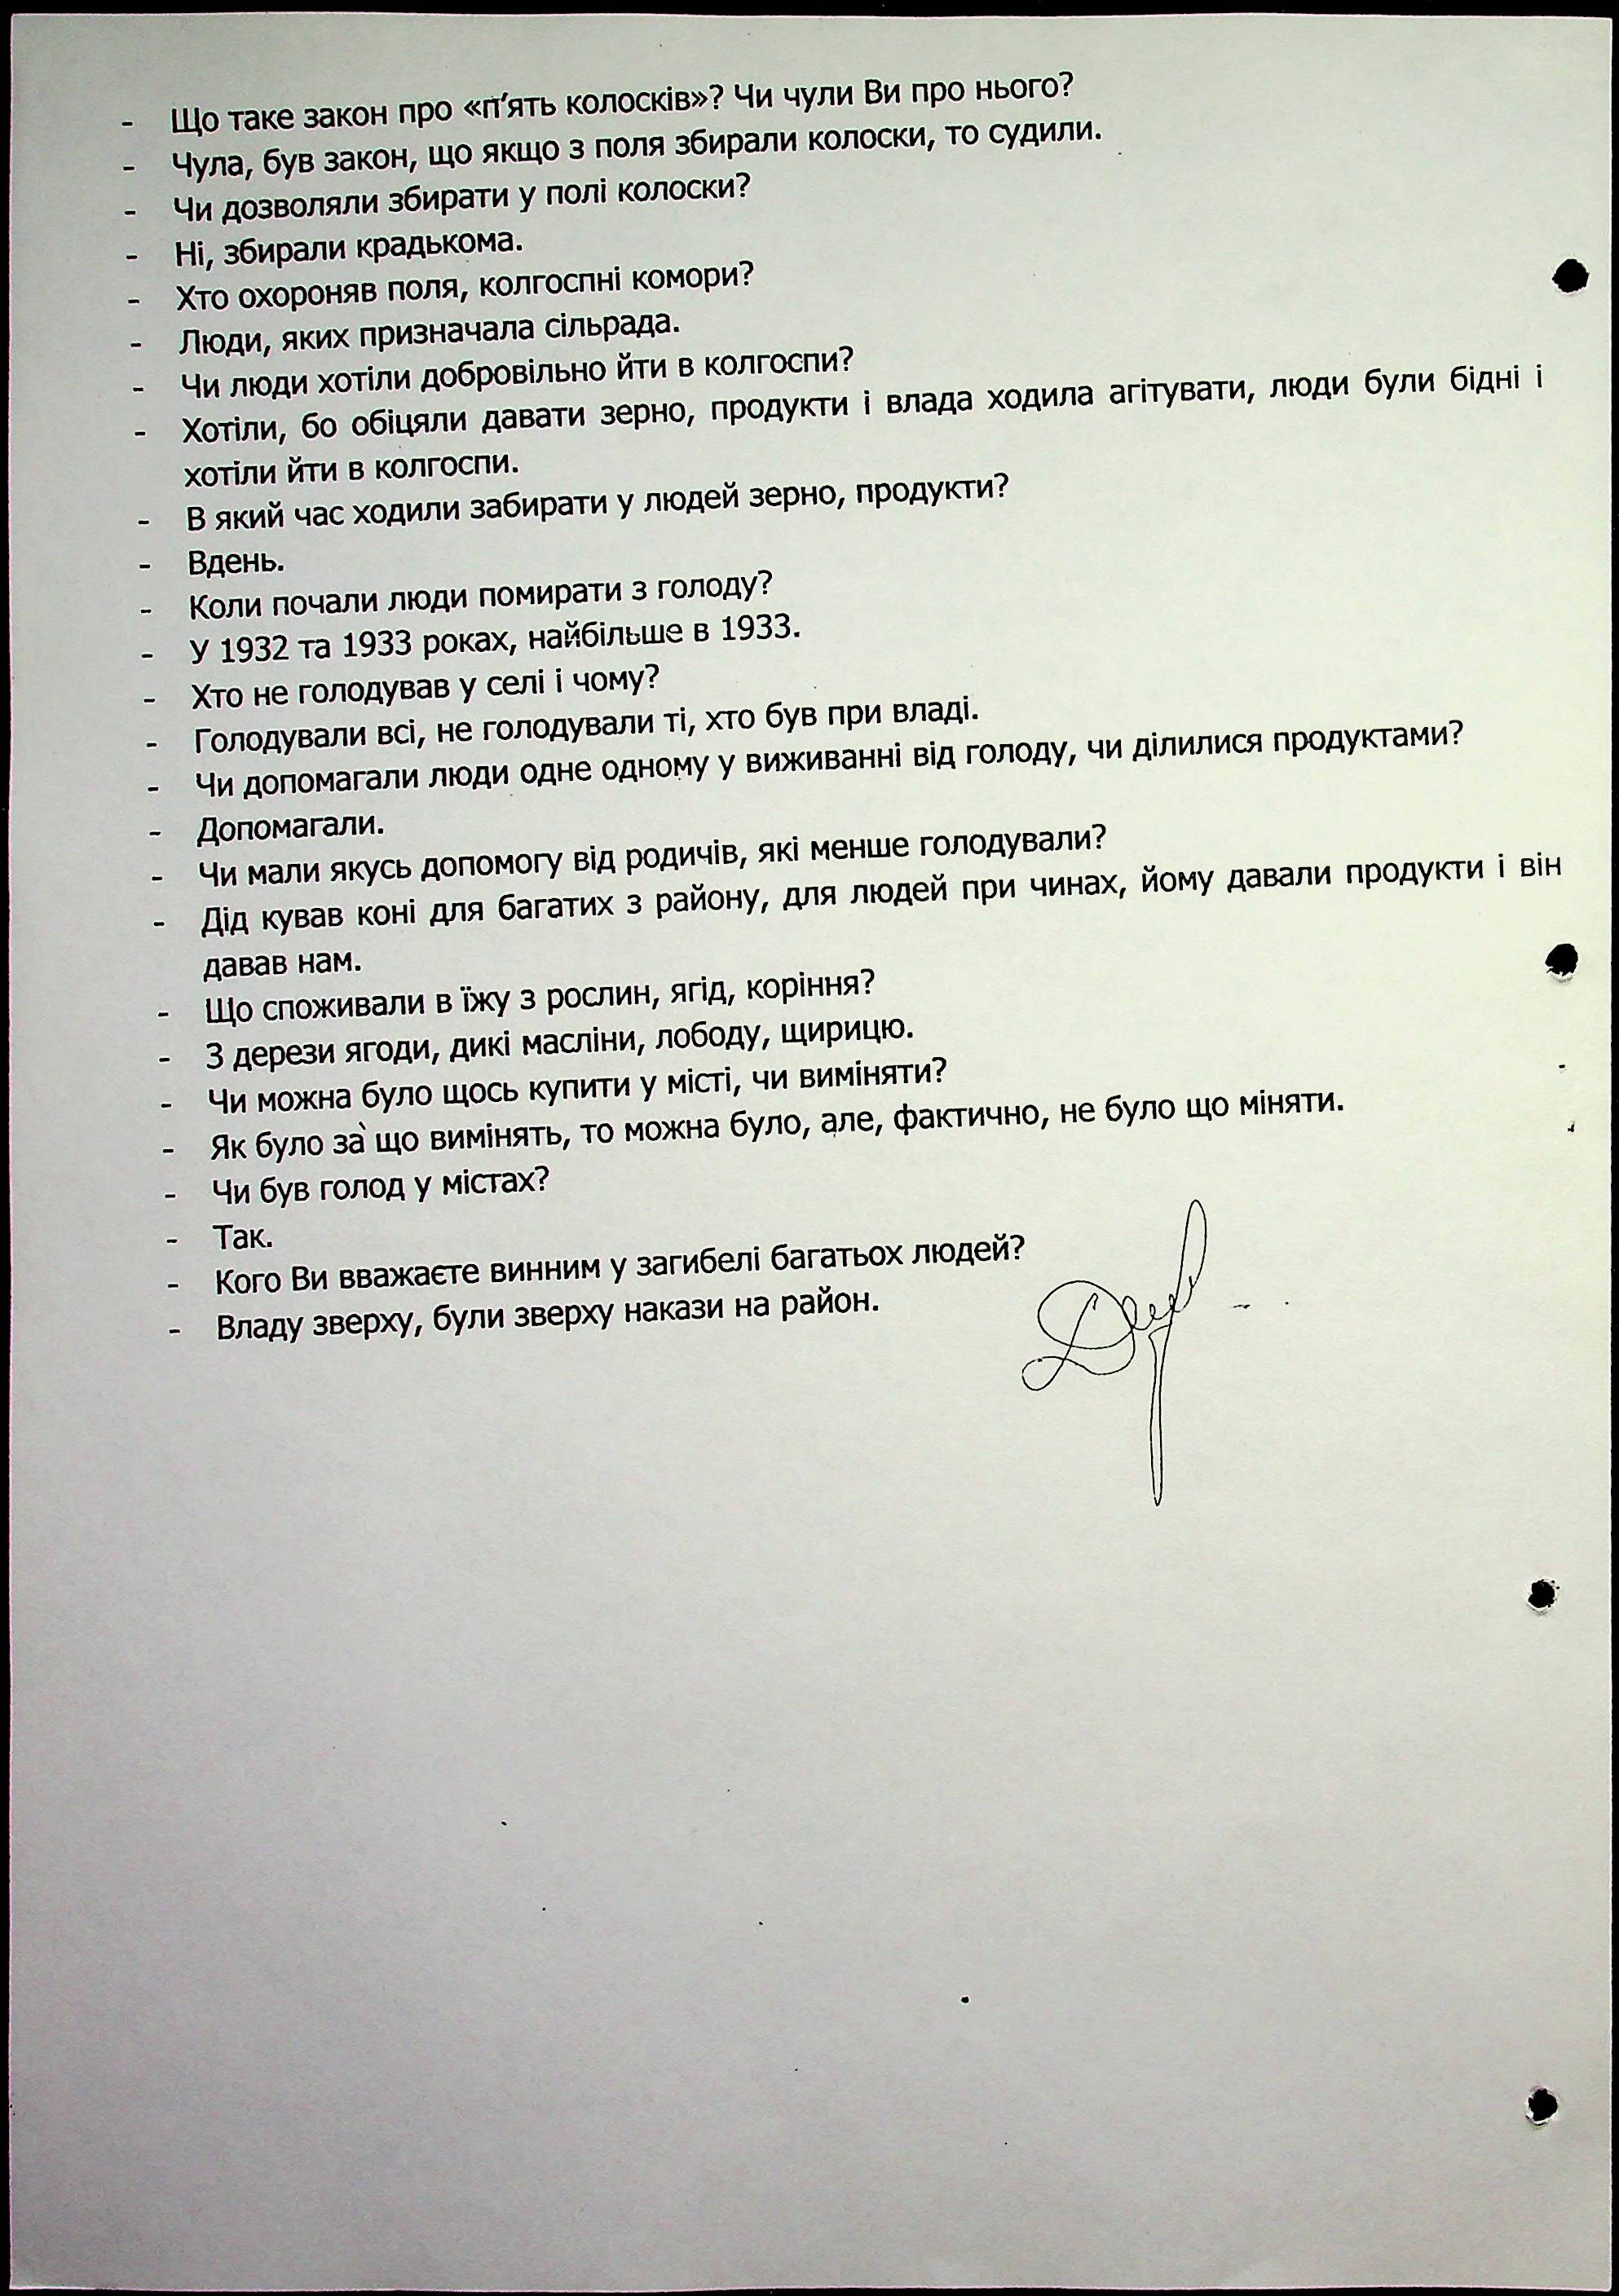 - Що таке закон про «п'ять колосків»? Чи чули Ви про нього?
- Чула, був закон, що якщо з поля збирали колоски, то судили.
- Чи дозволяли збирати у полі колоски?
- Ні, збирали крадькома.
- Хто охороняв поля, колгоспні комори?
- Люди, яких призначала сільрада.
- Чи люди хотіли добровільно йти в колгоспи?
- Хотіли, бо обіцяли давати зерно, продукти і влада ходила агітувати, люди були бідні і
хотіли йти в колгоспи.
- В який час ходили забирати у людей зерно, продукти?
- Вдень.
- Коли почали люди помирати з голоду?
- У 1932 та 1933 роках, найбільше в 1933.
- Хто не голодував у селі і чому?
- Голодували всі, не голодували ті, хто був при владі.
- Чи допомагали люди одне одному у виживанні від голоду, чи ділилися продуктами?
- Допомагали.
- Чи мали якусь допомогу від родичів, які менше голодували?
- Дід кував коні для багатих з району, для людей при чинах, йому давали продукти і він
давав нам.
- Що споживали в їжу з рослин, ягід, коріння?
- З дерези ягоди, дикі масліни, лободу, щирицю.
- Чи можна було щось купити у місті, чи виміняти?
- Як було за що вимінять, то можна було, але, фактично, не було що міняти.
- Чи був голод у містах?
- Так.
- Кого Ви вважаєте винним у загибелі багатьох людей?
- Владу зверху, були зверху накази на район.